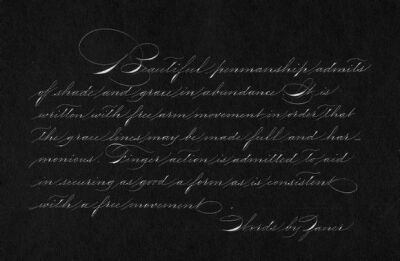 Beautiful penmanship admits
of shade and grace in abundance It is
written with free arm movement in order that
the grace lines may be made full and har-
monious. Finger action is admitted to aid
in securing as good a form as is consistent
with a free movement.
Words by Zaner